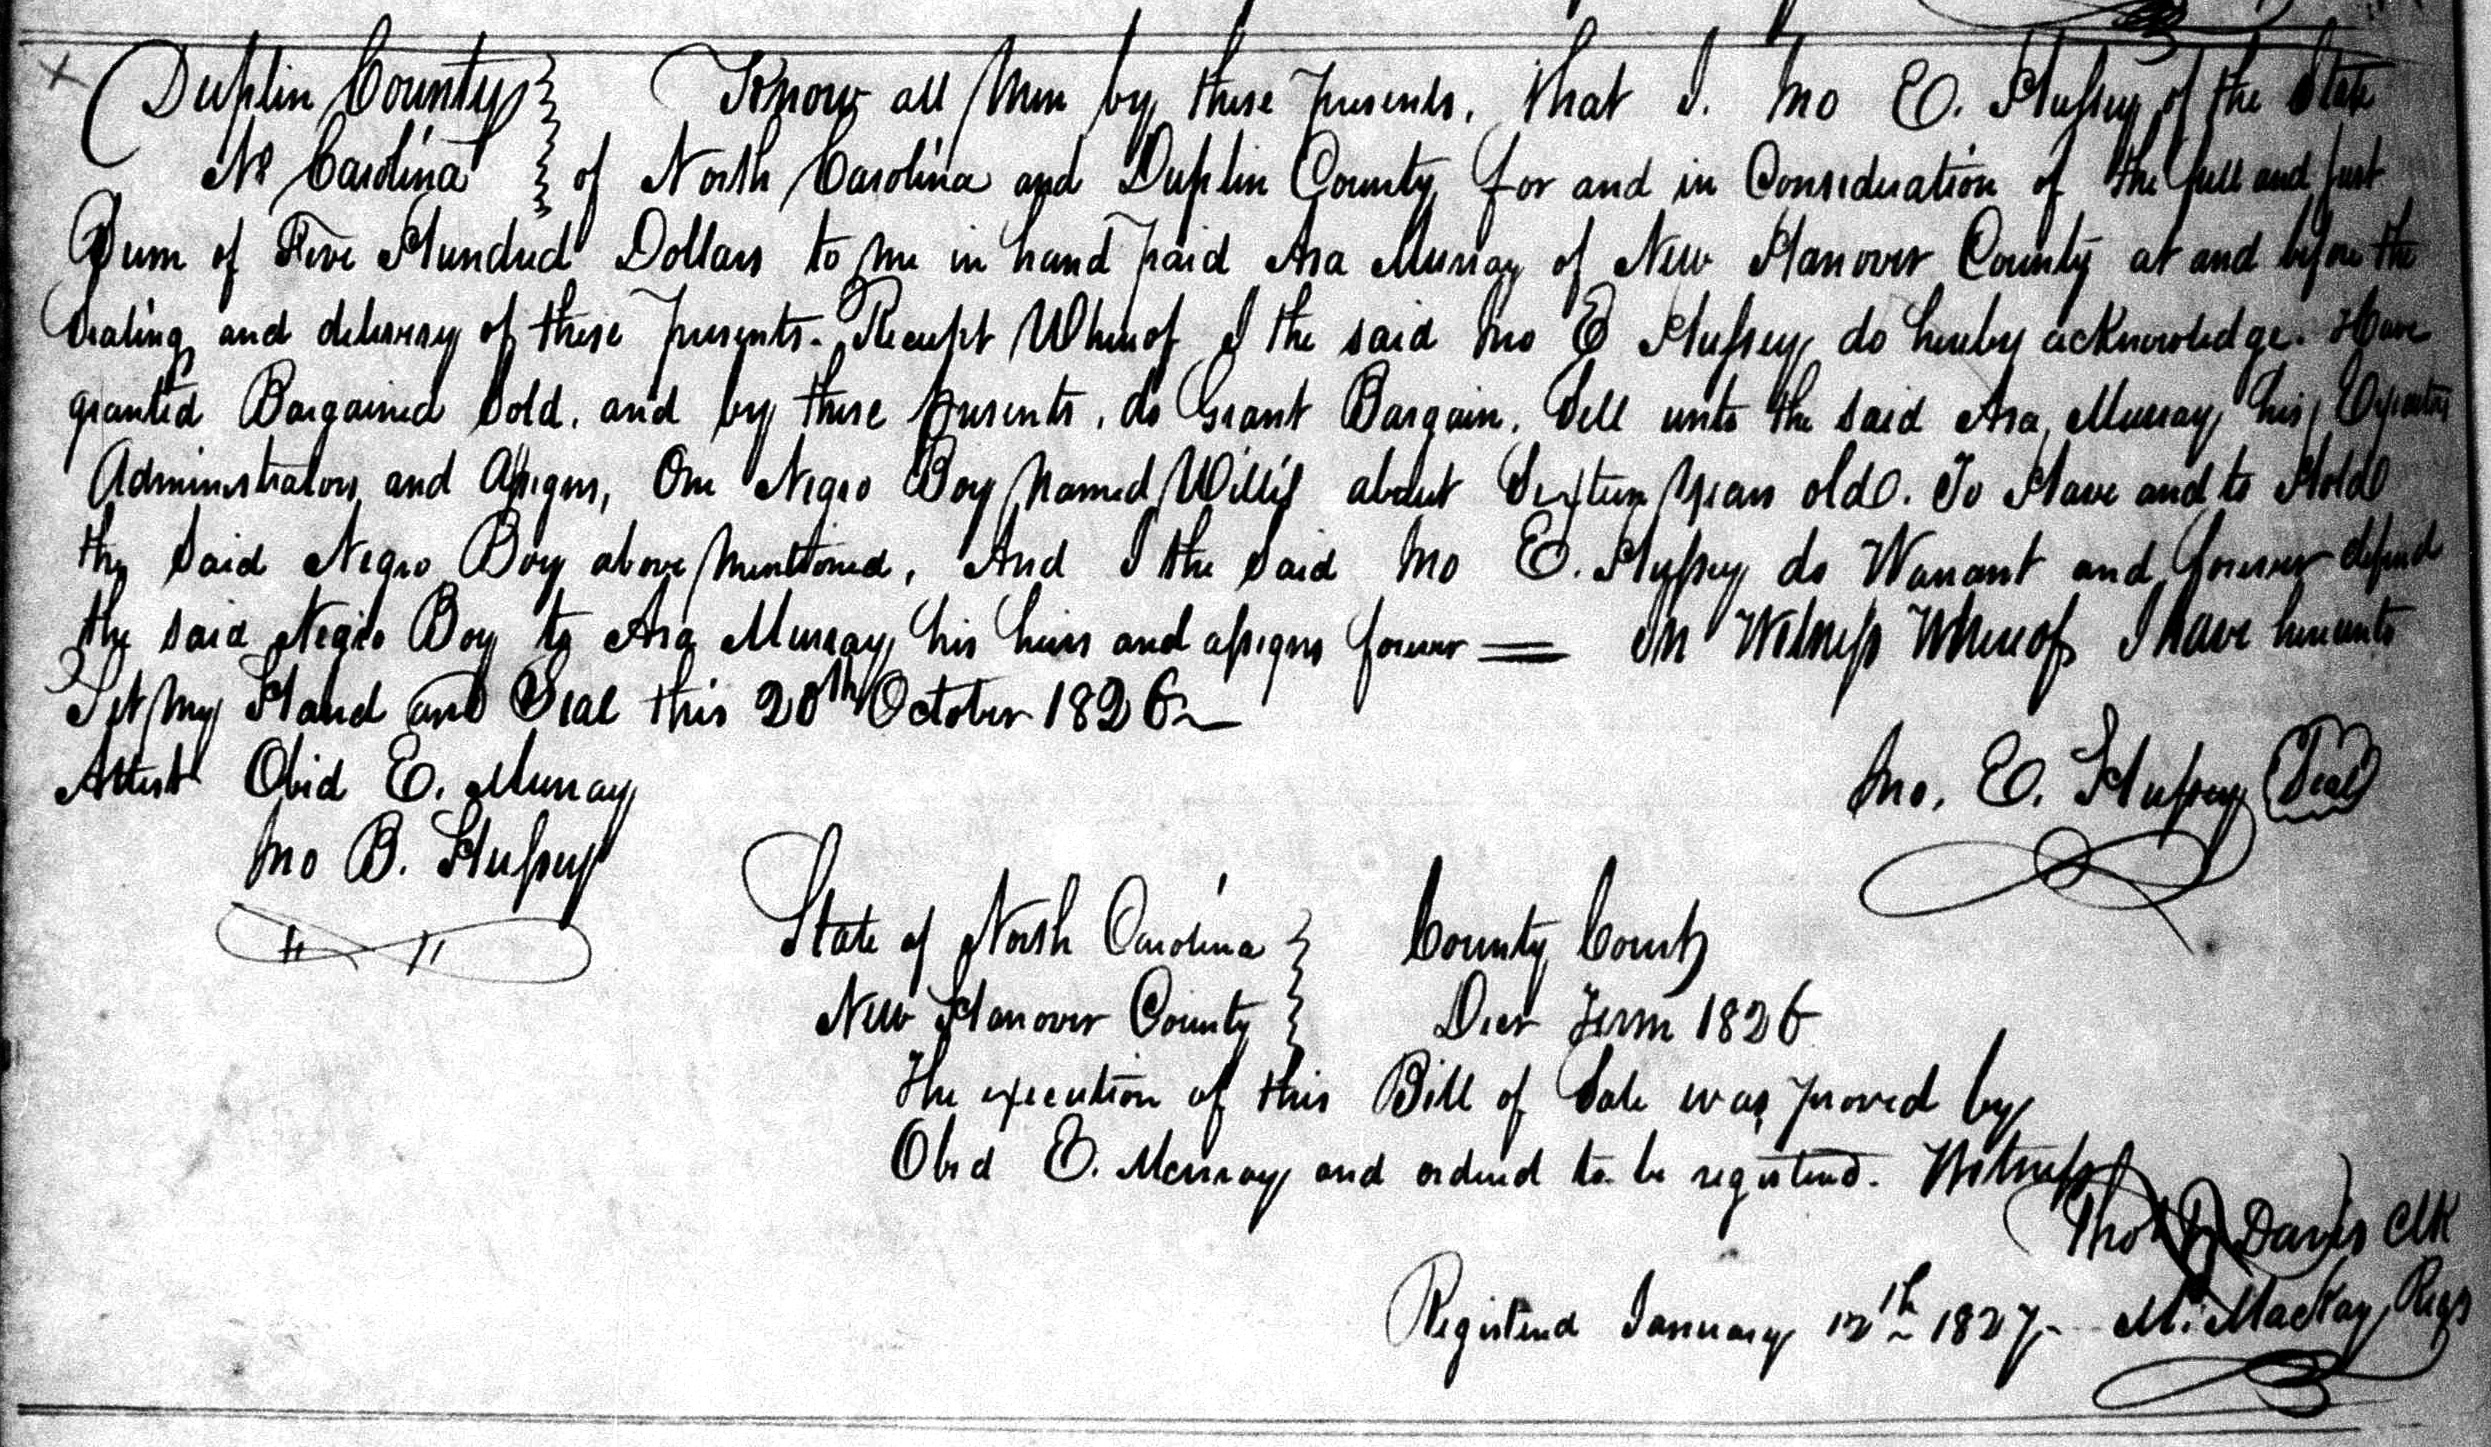 Duplin County Know all Men by these presents, that I. Jno E. Hussey of the State
No Carolina of North Carolina and Duplin County for and in Consideration of the full and just
Sum of Five Hundred Dollars to me in hand paid Asa Murray of New Hanover County at and before the
Sealing and delivery of these presents. Receipt Whereof I the said Jno E Hussey do hereby acknowledge. Have
granted Bargained Sold, and by these presents, do Grant Bargain, Sell unto the said Asa Murray his Executors
Administrators and Assigns, One Negro Boy Named Willis about Sixteen years old. To Have and to Hold
the Said Negro Boy above Mentioned, And I the Said Jno E. Hussey do Warrant and forever defend
the said Negro Boy to Asa Murray his heirs and assigns forever = In Witness Whereof I have hereunto
Set my Hand and Seal this 20th October 1826
Attest Obid E. Murray Jno. E. Hussey Seal
Jno B. Hussey
State of North Carolina County Court
New Hanover County Decr Term 1826
The execution of this Bill of Sale was proved by
Obid E. Murray and ordered to be registered. Witness
Thos Davis Clk
Registered January 12th 1827 M. MacKay Regs